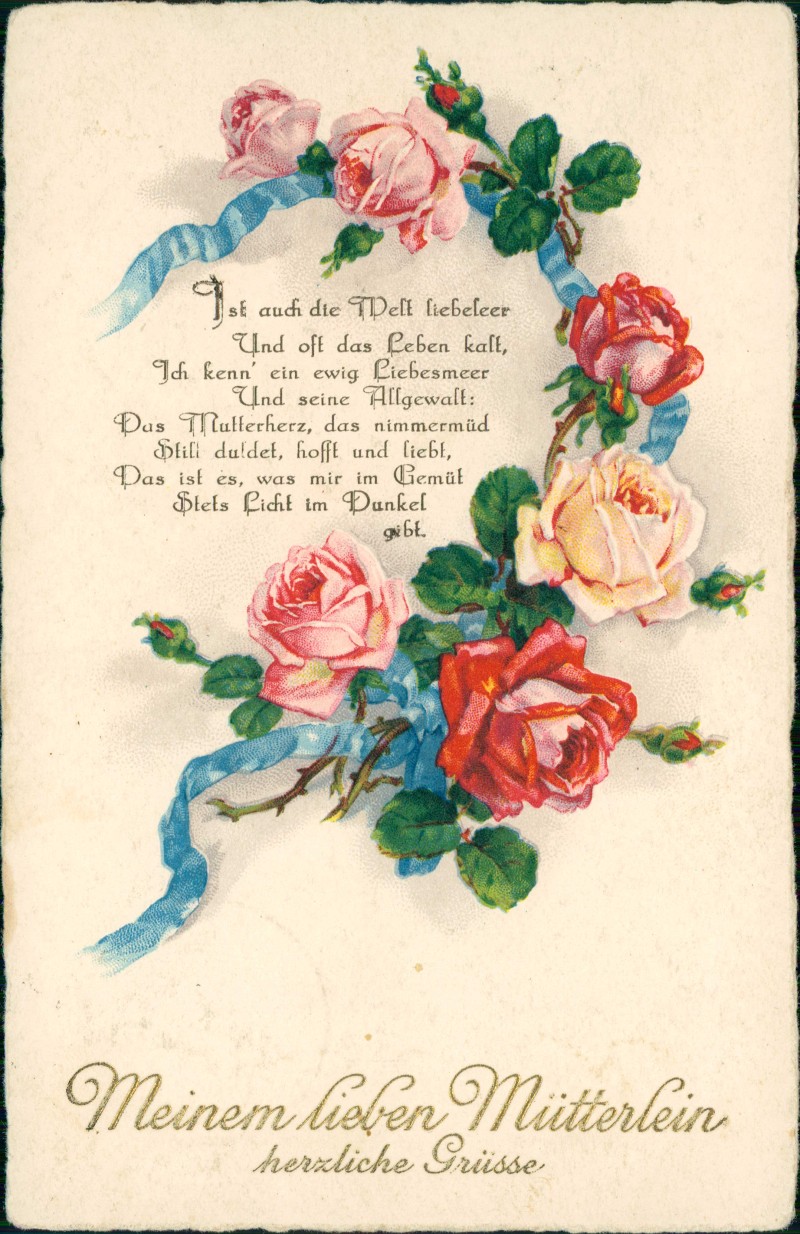 Ist auch die Welt liebeleer
Und oft das Leben kalt,
Ich kenn' ein ewig Liebesmeer
Und seine Allgewalt:
Das Mutterherz, das nimmermüd
Still duldet, hofft und liebt,
Das ist es, was mir im Gemüt
Stets Licht im Dunkel
gibt.
Meinem lieben Mütterlein
herzliche Grüsse